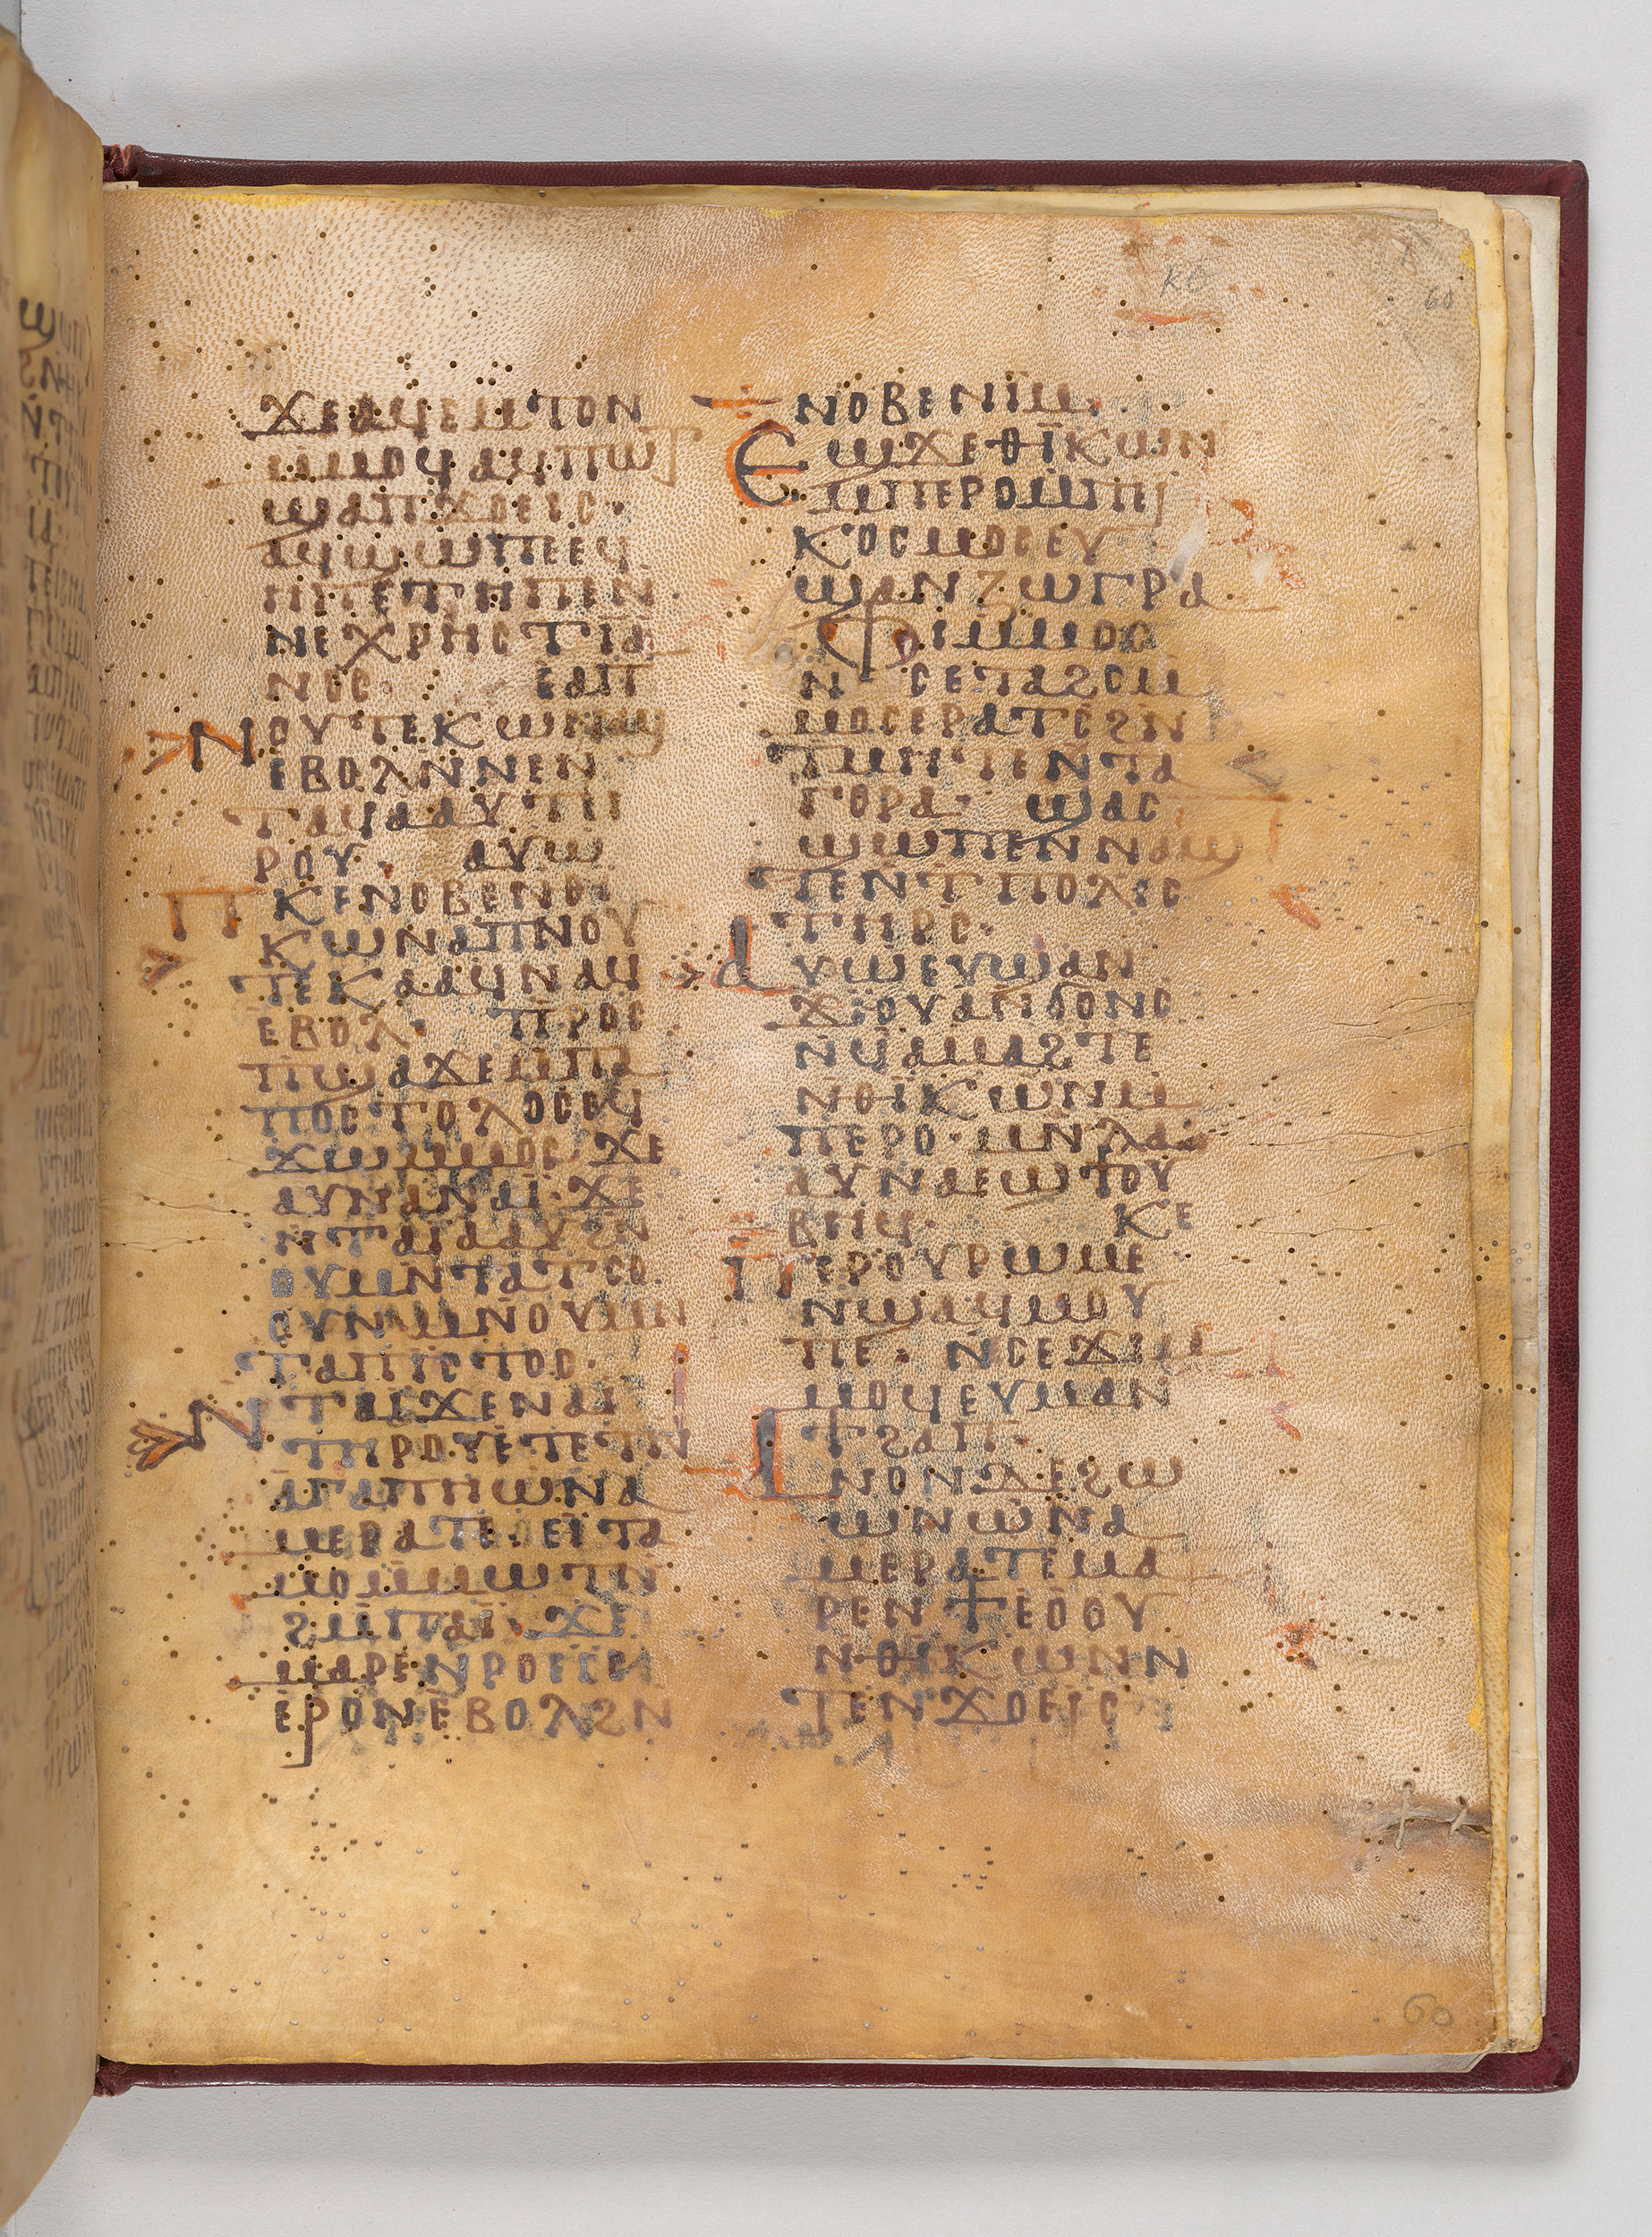 ⲔⲈ
60
ϪⲈⲀϤⲈⲘⲦⲞⲚ
ⲘⲘⲞϤⲀϤⲠⲰⲦ
ϢⲀⲠϪⲞⲈⲒⲤ·
ⲀϤϢⲰⲠⲈⲈϤ
ⲎⲠⲈⲦⲎⲠⲈⲚ
ⲚⲈⲬⲢⲎⲤⲦⲒⲀ
ⲚⲞⲤ· ⲈⲀⲠ
ⲚⲞⲨⲦⲈⲔⲰ
ⲈⲂⲞⲖⲚⲚⲈⲚ
ⲦⲀϤⲀⲀⲨⲦⲎ
ⲢⲞⲨ· ⲀⲨⲰ
ⲠⲔⲈⲚⲞⲂⲈⲚⲐⲒ
ⲔⲰⲚⲀⲠⲚⲞⲨ
ⲦⲈⲔⲀⲀϤⲚⲀϤ
ⲈⲂⲞⲖ· ⲠⲢⲞⲤ
ⲠϢⲀϪⲈⲘⲠⲀ
ⲠⲞⲤⲦⲞⲖⲞⲤⲈϤ
ϪⲰⲘⲘⲞⲤ·ϪⲈ
ⲀⲨⲚⲀⲚⲀⲒ·ϪⲈ
ⲚⲦⲀⲒⲀⲀⲨϨⲚ
ⲞⲨⲘⲚⲦⲀⲦⲤⲞ
ⲞⲨⲚⲘⲚⲞⲨⲘⲚ
ⲦⲀⲠⲒⲤⲦⲞⲤ·
ⲚⲦⲀⲒϪⲈⲚⲀⲒ
ⲦⲎⲢⲞⲨⲈⲦⲈⲦⲚ
ⲀⲄⲀⲠⲎⲰⲚⲀ
ⲘⲈⲢⲀⲦⲈ·ⲈⲒⲦⲀ
ⲘⲞⲘⲘⲰⲦⲚ
ϨⲘⲠⲀⲒ·ϪⲈ
ⲘⲀⲢⲈⲚⲢⲞⲈⲒⲤ
ⲈⲢⲞⲚⲈⲂⲞⲖϨⲚ
ⲚⲞⲂⲈⲚⲒⲘ·
ⲈϢϪⲈⲐⲒⲔⲰⲚ
ⲘⲠⲈⲢⲞⲘⲠⲈⲒ
ⲔⲞⲤⲘⲞⲤⲈⲨ
ϢⲀⲚⲌⲰⲄⲢⲀ
ⲪⲒⲘⲘⲞⲤ
Ⲛ ⲤⲈⲦⲀϨⲞⲘ
ⲘⲞⲤⲈⲢⲀⲦⲤϨⲚ
ⲦⲘⲎⲦⲈⲚⲦⲀ
ⲄⲞⲢⲀ· ϢⲀⲤ
ϢⲰⲠⲈⲚⲚⲀϢ
ⲦⲈⲚⲦⲠⲞⲖⲒⲤ
ⲦⲎⲢⲤ·
ⲀⲨⲰⲈⲨϢⲀⲚ
ϪⲒⲞⲨⲀⲚϬⲞⲚⲤ
ⲚϤⲀⲘⲀϨⲦⲈ
ⲚⲐⲒⲔⲰⲚⲘ
ⲠⲈⲢⲞ·ⲘⲚⲖⲀ
ⲀⲨⲚⲀⲈϢⲦⲞⲨ
ⲂⲎϤ· ⲔⲈ
ⲠⲈⲢⲞⲨⲢⲰⲘⲈ
ⲚϢⲀϤⲘⲞⲨ
ⲠⲈ· ⲚⲤⲈϪⲒⲘ
ⲘⲞϤⲈⲨⲘⲀⲚ
ϮϨⲀⲠ·
ⲀⲚⲞⲚⲆⲈϨⲰ
ⲰⲚⲰⲚⲀ
ⲘⲈⲢⲀⲦⲈⲘⲀ
ⲢⲈⲚϮⲈⲞⲞⲨ
ⲚⲐⲒⲔⲰⲚⲚ
ⲦⲈⲚϪⲞⲈⲒⲤ
60